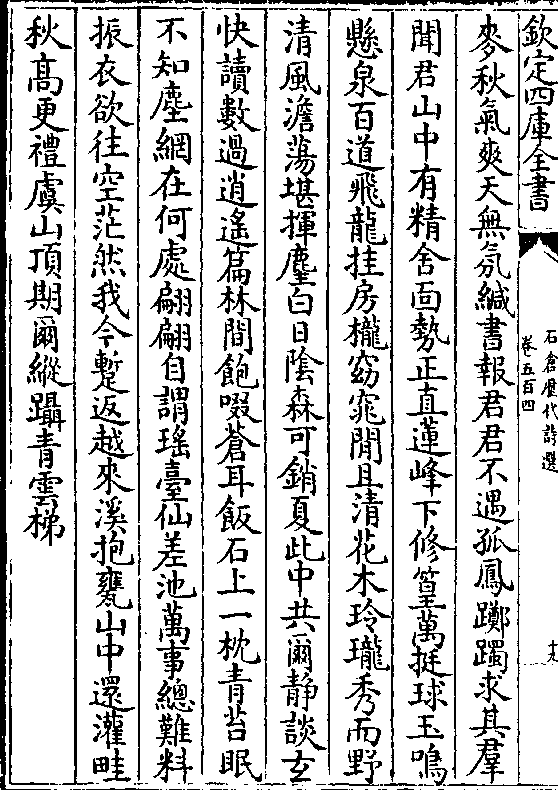 欽定四庫全書
石倉歷代詩選
卷五百四
麥秋氣爽天無氛緘書報君君不遇孤鳳躑躅求其羣
聞君山中有精舍面勢正直蓮峰下修篁萬挺球玉鳴
懸泉百道飛龍挂房櫳窈窕閒且清花木玲瓏秀而野
清風澹蕩堪揮麈白日陰森可銷夏此中共爾静談玄
快讀數過逍遙篇林間飽啜蒼耳飯石上一枕青苔眠
不知塵網在何處翩翩自謂瑤臺仙差池萬事總難料
振衣欲往空茫然我今蹔返越來溪抱甕山中還灌畦
秋髙更禮虞山頂期爾縱躡青雲梯